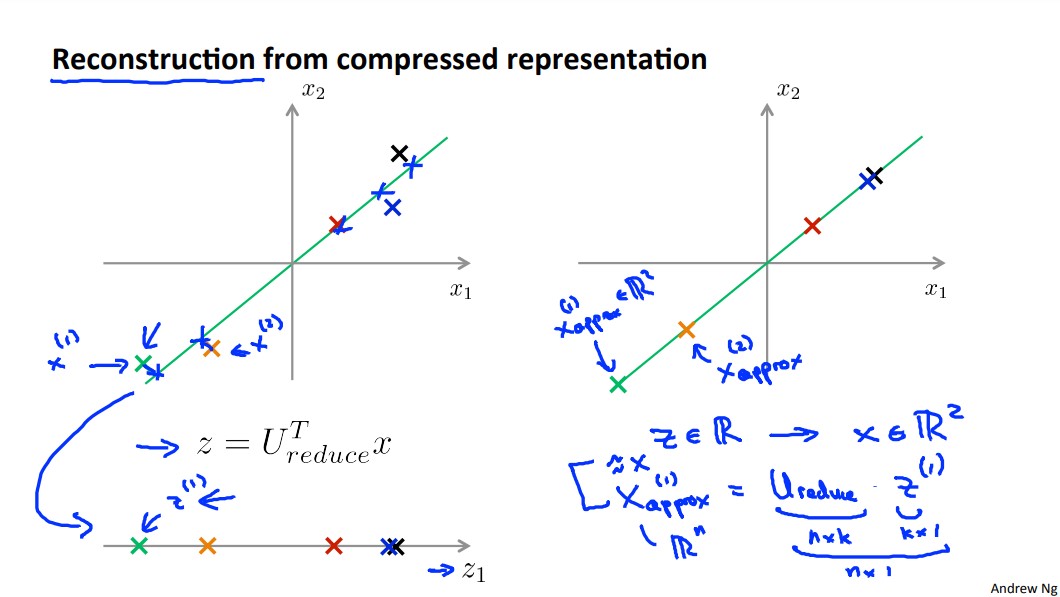 Reconstruction from compressed representation
x₂
x₁
x⁽¹⁾
x⁽²⁾
z = Uᵀ_reduce x
z⁽¹⁾
z₁
x₂
x₁
x⁽¹⁾approx ∈ ℝ²
x⁽²⁾approx
z ∈ ℝ → x ∈ ℝ²
≈ x
x⁽¹⁾approx = Ureduce · z⁽¹⁾
ℝⁿ
n×k
k×1
n×1
Andrew Ng